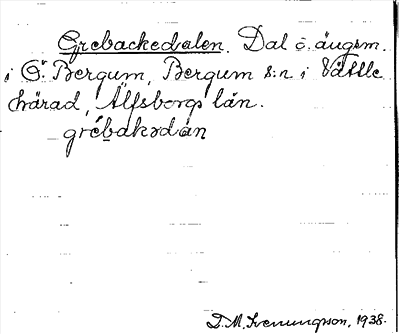 Grebackedalen. Dal o. ängsm.
i Ö. Bergum, Bergum s:n i Vättle
härad, Älfsborgs län.
grèbakədàn
D. M. Svenungsson, 1938.